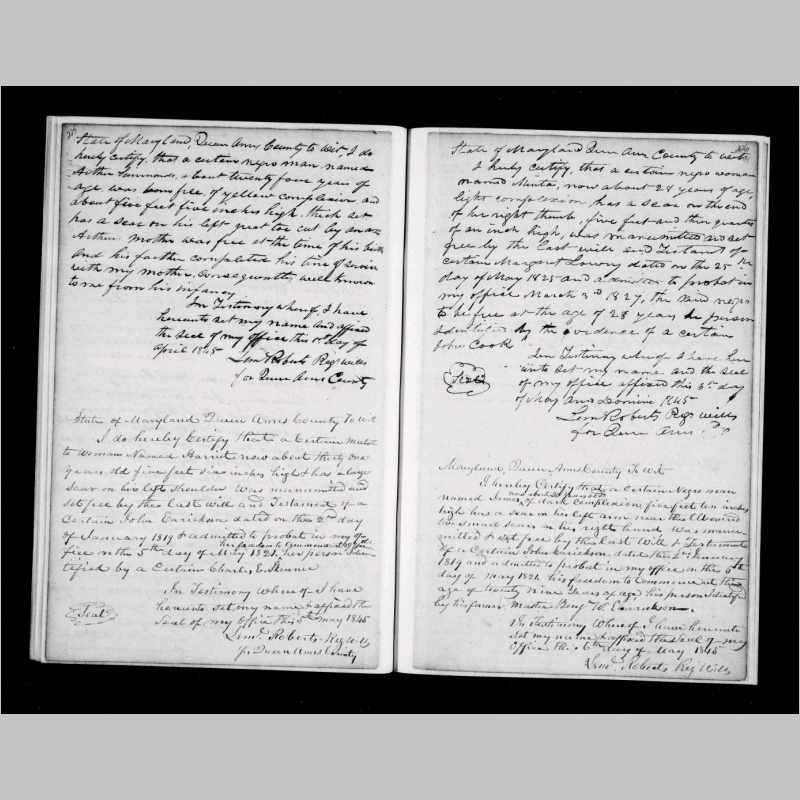 State of Maryland, Queen Anns County to wit, I do
hereby certify, that a certain negro man named
Arthur Simmonds, about twenty four years of
age was born free, of yellow complexion and
about five feet five inches high, thick set
has a scar on his left great toe cut by an axe
Arthur mother was free at the time of his birth
and his farther completed his time of
with my mother, Consequently well known
to me from his infancy
In Testimony whereof, I have
hereunto set my name and affixed
the seal of my office this 1st day of
April 1845
Lem Roberts Regr wills
for Queen Anns County
State of Maryland Queen Annes County To Wit
I do hereby Certify that a Certain Mulat
to Woman Named Harriet now about thirty One
years old five feet six inches high & has a large
Scar on his left Shoulder Was manumitted and
set free by the Last Will and Testament of a
Certain John Earickson dated on the 2nd day
of January 1819 & admitted to probate in my of-
fice on the 5th day of May 1821, her person Iden-
tified by a Certain Charles E. Skinner
In Testimony Where of I have
hereunto set my name & affixed the
Seal of my Office this 5th May 1845
Seal
Leml. Roberts Reg Wills
for Queen Annes County
State of Maryland Queen Ann County to wit
I hereby certify, that a certain negro woman
named Minta, now about 28 years of age,
light complexion, has a scar on the end
of her right thumb, five feet and three quarters
of an inch high, was manumitted and set
free by the Last will and Testament of a
certain Margaret Lowry dated on the 25th
day of May 1825 and admitted to probate in
my office March 2nd 1827, the said negro
to be free at the age of 28 years her person
identified by the evidence of a certain
John Cook
In Testimony whereof I have here
unto set my name and the seal
of my office affixed this 3rd day
of May Anno Domini 1845
Seal
Lem Roberts Regr wills
for Queen Anns
Maryland, Queen Anns County To Wit
I hereby Certify that, a Certain Negro man
named James of dark Complexion, five feet ten inches
high has a scar on his left arm near the Elbow and
two small scars on his right hand Was manu-
mitted & set free by the Last Will & Testament
of a Certain John Earickson dated the 2nd January
1819 and admitted to probate in my office on the 5th
day of May 1821 his freedom to Commence at the
age of twenty Nine Years of age his person Identified
by his former Master Benj H. Earickson.
In Testimony Whereof I have hereunto
set my name & affixed the Seal of my
Office this 6th day of May 1845
Leml. Roberts Reg Wills